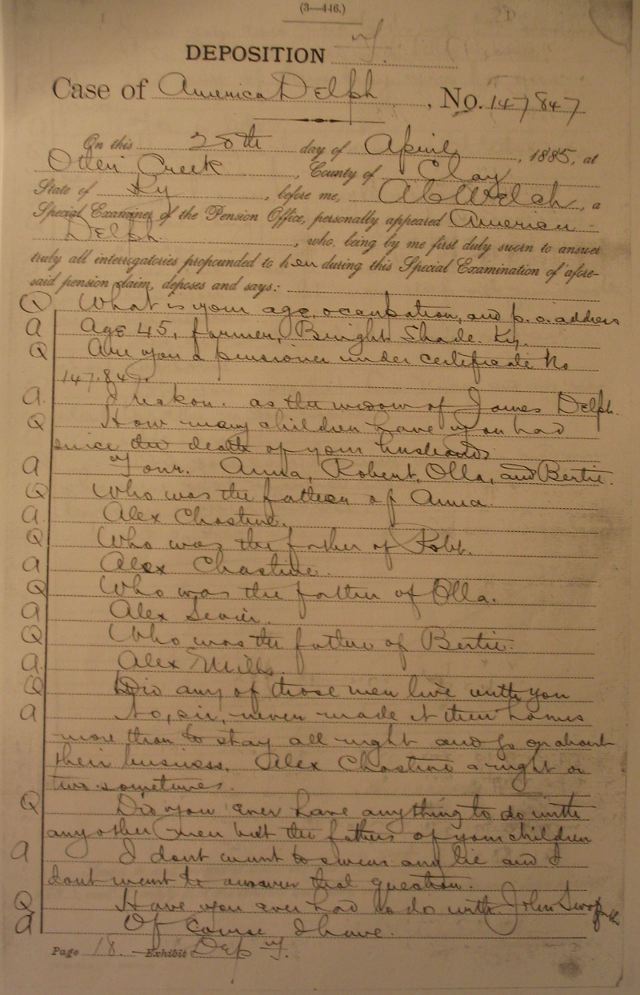 (3—446.)
DEPOSITION
Case of America Delph, No. 147847
On this 28th day of April, 1885, at
Otter Creek, County of Clay
State of Ky, before me, A C Welch, a
Special Examiner of the Pension Office, personally appeared American
Delph, who, being by me first duly sworn to answer
truly all interrogatories propounded to her during this Special Examination of afore-
said pension claim, deposes and says:
Q What is your age, occupation, and p. o. address
a Age 45, farmer, Bright Shade Ky.
Q Are you a pensioner under certificate No
147.847.
a. I reckon. as the widow of James Delph.
Q How many children have you had
since the death of your husband
a Four. Anna, Robert, Olla, and Bertie.
Q Who was the father of Anna.
a. Alex Chastine.
Q Who was the father of Robt.
a Alex Chastine.
Q Who was the father of Olla.
a Alex
Q Who was the father of Bertie.
a. Alex Mills.
Q Did any of those men live with you
a No, sir, never made it their homes
more than to stay all night and go on about
their business. Alex Chastine a night or
two sometimes.
Q Did you ever have anything to do with
any other men but the fathers of your children
a I dont want to swear any lie and I
dont want to answer that question.
Q Have you ever had to do with John
a Of course I have.
Page 18. Exhibit Dep